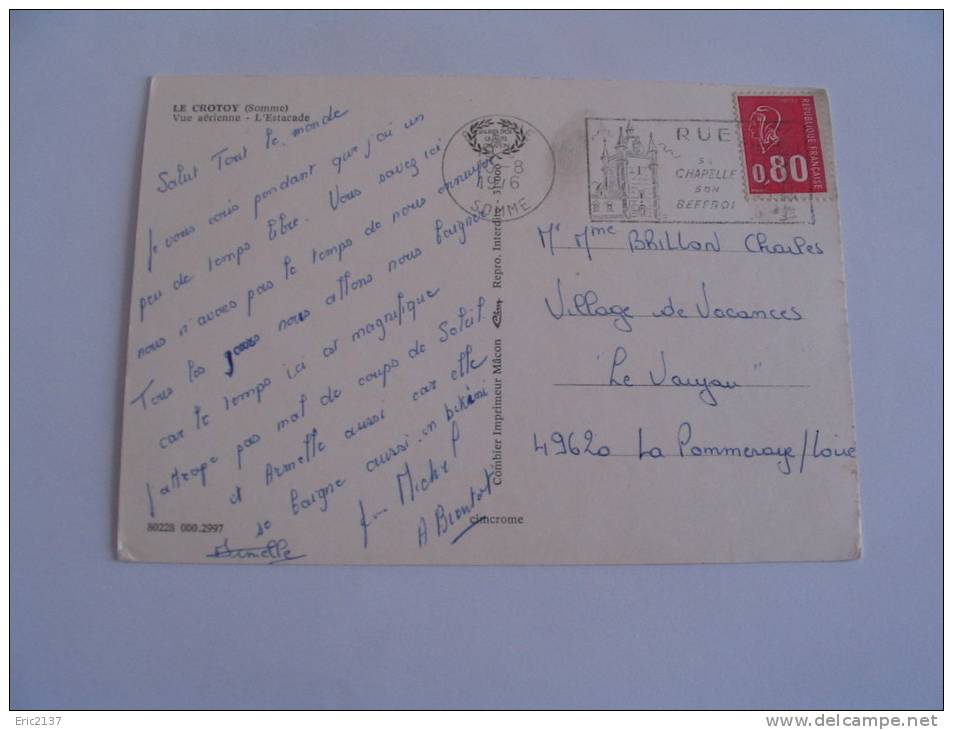 LE CROTOY (Somme)
Vue aérienne - L'Estacade
Salut Tout le monde
Je vous écris pendant que j'ai un
peu de temps libre. Vous savez ici
nous n'avons pas le temps de nous ennuyer
Tous les jours nous allons nous baigner
car le temps ici est magnifique
j'attrape pas mal de coups de Soleil
et Armelle aussi car elle
se baigne aussi en bikini
Michel
A Bientôt
Armelle
80228 000.2997
cimcrome
Combier Imprimeur Mâcon Repro. Interdite - 31000
-8
1976
SOMME
RUE
SA
CHAPELLE
SON
BEFFROI
REPUBLIQUE FRANÇAISE
0,80
Mr Mme BRILLON Charles
Village de Vacances
"Le Vaujau"
49620 La Pommeraye/Loire
Eric2137
www.delcampe.net